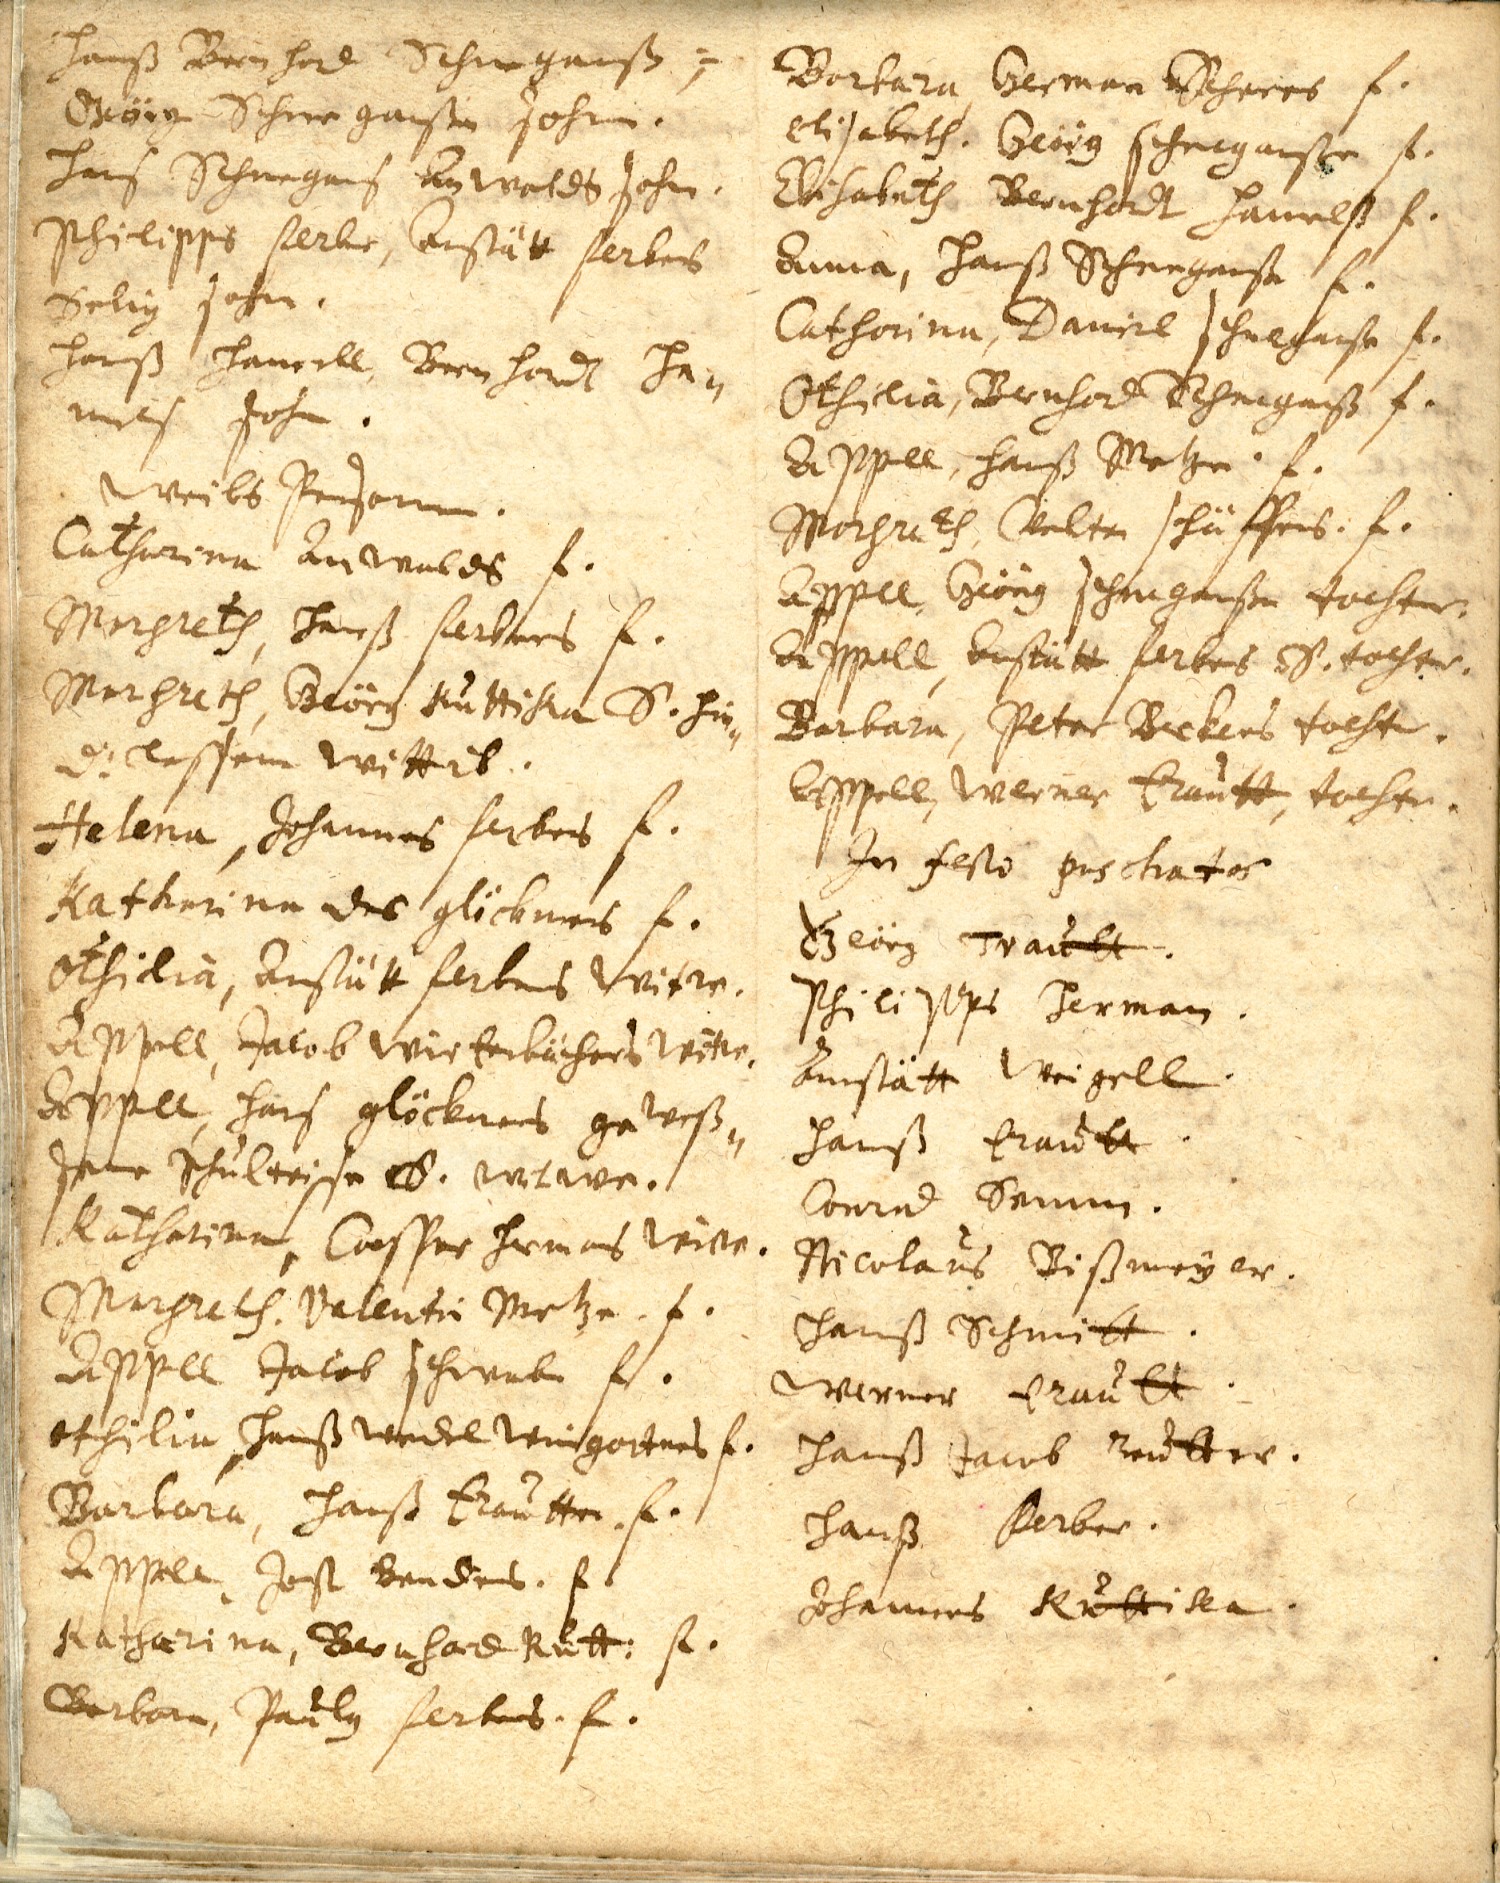 Hanß Bernhard Schneeganß,
Geörg Schneeganßen sohn.
Hans Schneegans Anwalds sohn.
Philipps ferber, Anstätt ferbers
Selig sohn.
Hanß Hamell, Bernhardt Ha„
mels sohn.
Weibs Persones.
Catharina Anwalds f.
Margreth, Hanß ferbers f.
Margreth, Geörg Kuttisen S. hin„
derlassene wittib.
Helena, Johannes ferbers f.
Katharina des glöckners f.
Othilia, Anstätt ferbers witwe.
Appell, Jacob witwe.
Appell, Hans glöckners geweß„
sene Schulteissen S. witwe.
Katharina, Casper Hermans witwe.
Margreth, Valentin Metzen f.
Appell Jacob schwaben f.
othilia, Hanß wendel weingartners f.
Barbara, Hanß Trautten f.
Appell, Jost benders f.
Katharina, Bernhard Kutt: f.
Barbara, Pauly ferbers f.
Barbara, German Scherers f.
elisabeth, Geörg schneeganßen f.
Elisabeth Bernhardt Hamelß f.
Anna, Hanß Schneeganßen f.
Catharina, Daniel schneeganßen f.
Othilia, Bernhard Schneeganß f.
Appell, Hanß Metzen f.
Margreth, Velten schäffers f.
Appell, Geörg schneeganßen tochter.
Appell, Anstätt ferbers S. tochter.
Barbara, Peter Beckers tochter.
Appell, Werner Trautt, tochter.
In festo paschatos
Geörg Trautt.
Philipps Herman.
Anstätt Weigell.
Hanß Trautt.
Conrad Semm.
Nicolaus Bißmeÿer.
Hanß Schmitt.
Werner Trautt.
Hanß Jacob Reutter.
Hanß ferber.
Johannes Kuttisen.